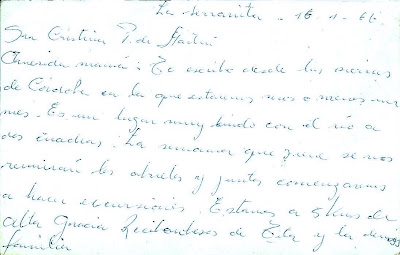 La Serranita - 16-1-66.
Sra Cristina P. de
Querida mamá: Te escribo desde las sierras
de Córdoba en la que estaremos mas o menos un
mes. Es un lugar muy lindo con el río a
dos cuadras. La semana que viene se nos
reunirán los abuelos y juntos comenzaremos
a hacer excursiones. Estamos a 5 kms de
Alta Gracia. de y la demás
familia